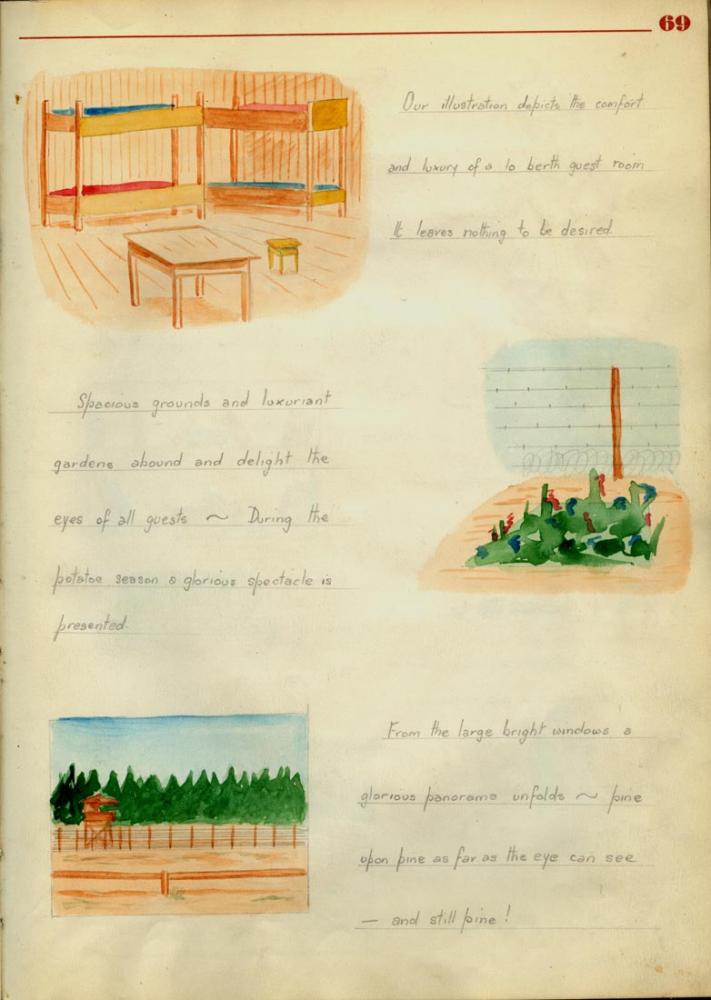 69
Our illustration depicts the comfort
and luxury of a 10 berth guest room
It leaves nothing to be desired
Spacious grounds and luxuriant
gardens abound and delight the
eyes of all guests ~ During the
potatoe season a glorious spectacle is
presented.
From the large bright windows a
glorious panorama unfolds ~ pine
upon pine as far as the eye can see
— and still pine!